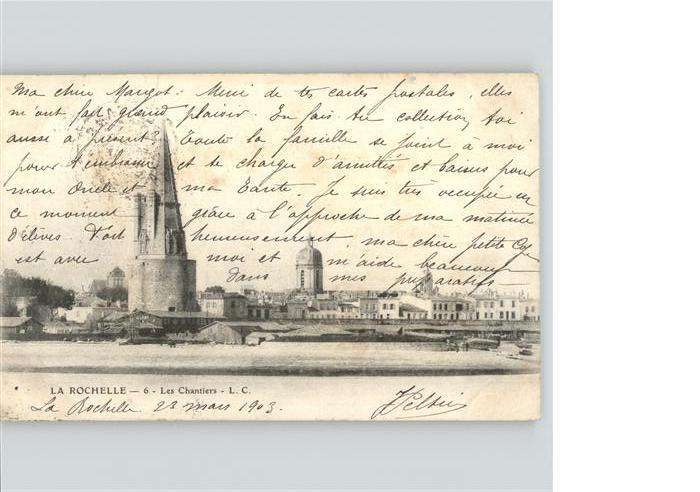 Ma chère Margot. Merci de tes cartes postales, elles
m'ont fait grand plaisir. En fais tu collection, toi
aussi à présent? Toute la famille se joint à moi
pour t'embrasser et te charge d'amitiés et baisers pour
mon Oncle et ma Tante. Je suis très occupée en
ce moment grâce à l'approche de ma matinée
d'élèves. heureusement, ma chère petite
est avec moi et m'aide beaucoup
dans mes préparatifs
LA ROCHELLE — 6 - Les Chantiers - L. C.
La Rochelle 23 mars 1903.